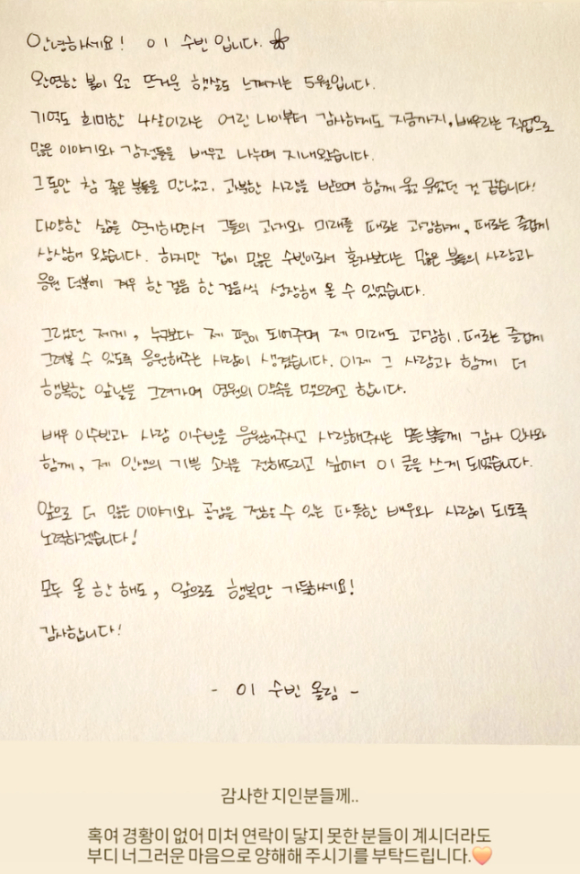 안녕하세요! 이 수빈입니다.
완연한 봄이 오고 뜨거운 햇살도 느껴지는 5월입니다.
기억도 희미한 4살이라는 어린 나이부터 감사하게도 지금까지, 배우라는 직업으로
많은 이야기와 감정들을 배우고 나누며 지내왔습니다.
그동안 참 좋은 분들을 만났고, 과분한 사랑을 받으며 함께 울고 웃었던 것 같습니다!
다양한 삶을 연기하면서 그들의 과거와 미래를 때로는 과감하게, 때로는 즐겁게
상상해 왔습니다. 하지만 겁이 많은 수빈이라서 혼자보다는 많은 분들의 사랑과
응원 덕분에 겨우 한 걸음 한 걸음씩 성장해 올 수 있었습니다.
그랬던 제게, 누구보다 제 편이 되어주며 제 미래도 과감히, 때로는 즐겁게
그려볼 수 있도록 응원해주는 사람이 생겼습니다. 이제 그 사람과 함께 더
행복한 앞날을 그려가며 영원의 약속을 맺으려고 합니다.
배우 이수빈과 사람 이수빈을 응원해주시고 사랑해주시는 모든 분들께 감사 인사와
함께, 제 인생의 기쁜 소식을 전해드리고 싶어서 이 글을 쓰게 되었습니다.
앞으로 더 많은 이야기와 공감을 전할 수 있는 따뜻한 배우와 사람이 되도록
노력하겠습니다!
모두 올 한 해도, 앞으로도 행복만 가득하세요!
감사합니다!
- 이 수빈 올림 -
감사한 지인분들께..
혹여 경황이 없어 미처 연락이 닿지 못한 분들이 계시더라도
부디 너그러운 마음으로 양해해 주시기를 부탁드립니다.🧡